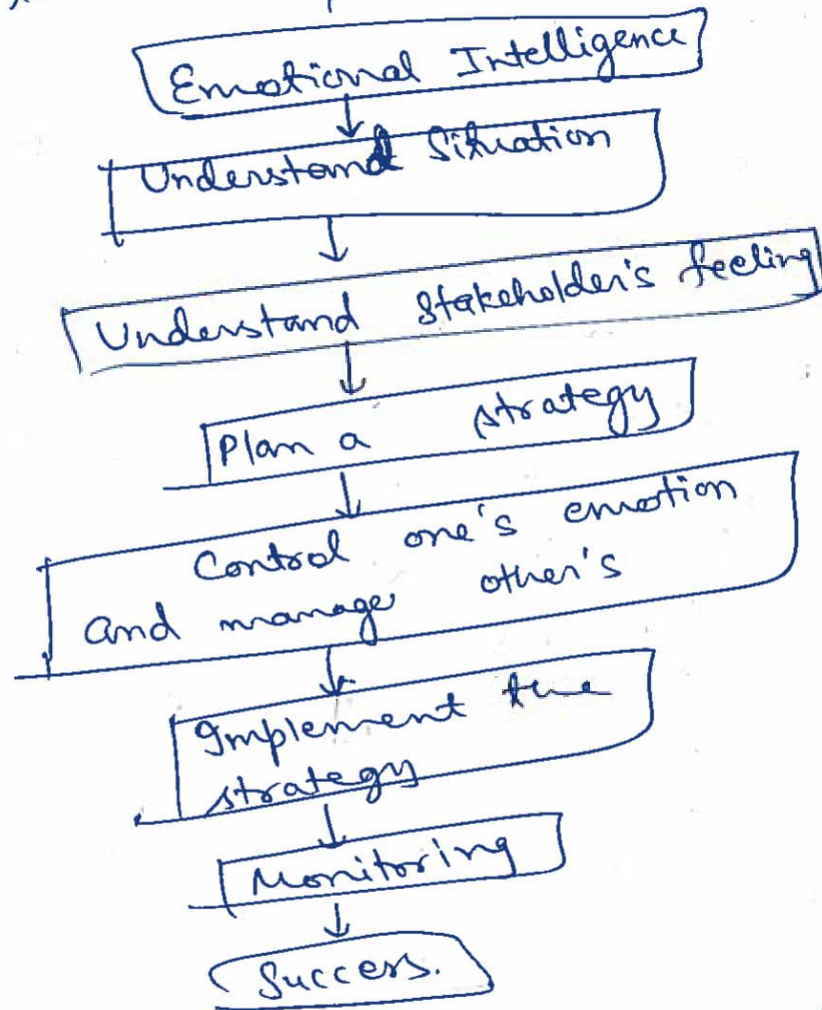 Emotional Intelligence
Understand Situation
Understand Stakeholder's feeling
Plan a strategy
Control one's emotion
and manage other's
Implement the
strategy
Monitoring
Success.